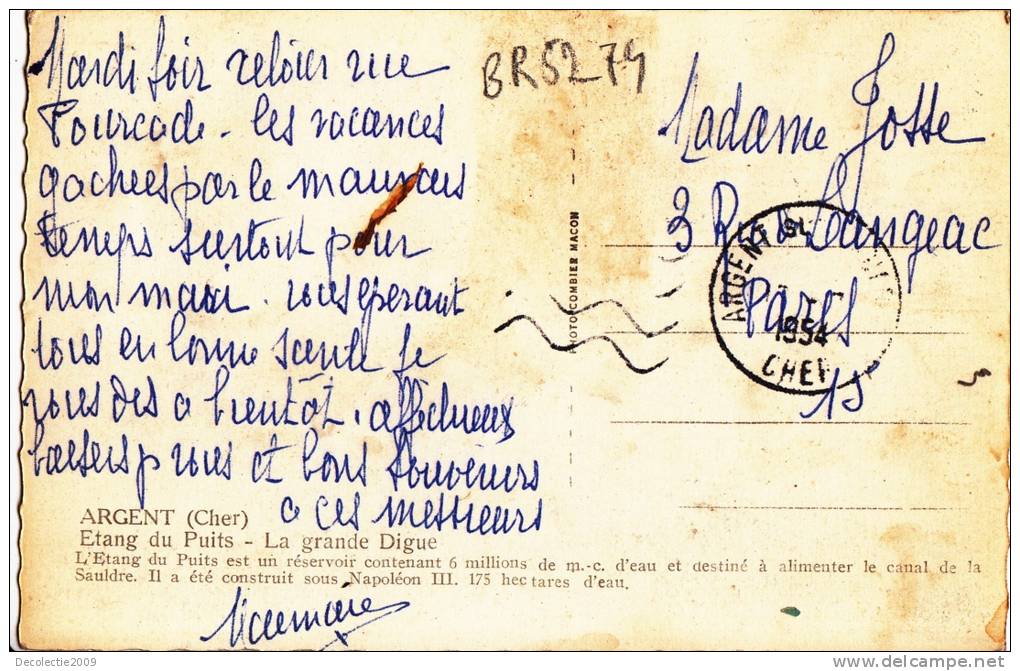 Mardi soir retour rue
Fourcade - les vacances
gachées par le mauvais
temps surtout pour
mon mari. vous esperant
tous en bonne santé je
vous dis a bientôt. affectueux
baisers p vous et bons souvenirs
a ces messieurs
BR5274
Madame Josse
3 Rue Langeac
Paris
15
ARGENT SUR
1954
CHER
PHOTO COMBIER MACON
ARGENT (Cher)
Etang du Puits - La grande Digue
L'Etang du Puits est un réservoir contenant 6 millions de m.-c. d'eau et destiné à alimenter le canal de la
Sauldre. Il a été construit sous Napoléon III. 175 hectares d'eau.
Decolectie2009
www.delcampe.net